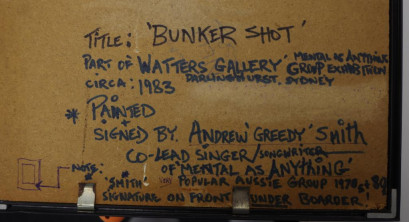 TITLE: 'BUNKER SHOT'
PART OF WATTERS GALLERY 'MENTAL AS ANYTHING' GROUP EXHIBITION
CIRCA: 1983 DARLINGHURST. SYDNEY
* PAINTED
+
SIGNED BY. ANDREW 'GREEDY' SMITH
CO-LEAD SINGER/SONGWRITER
NOTE: OF 'MENTAL AS ANYTHING'
'SMITH' POPULAR AUSSIE GROUP 1970s+ 80
SIGNATURE ON FRONT UNDER BOARDER!